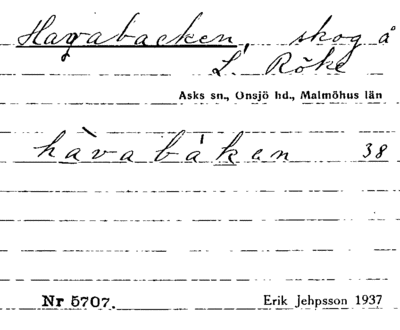 Havabacken, skog å
L. Röke
Asks sn., Onsjö hd., Malmöhus län
hàvabáken 38
Nr 5707. Erik Jehpsson 1937